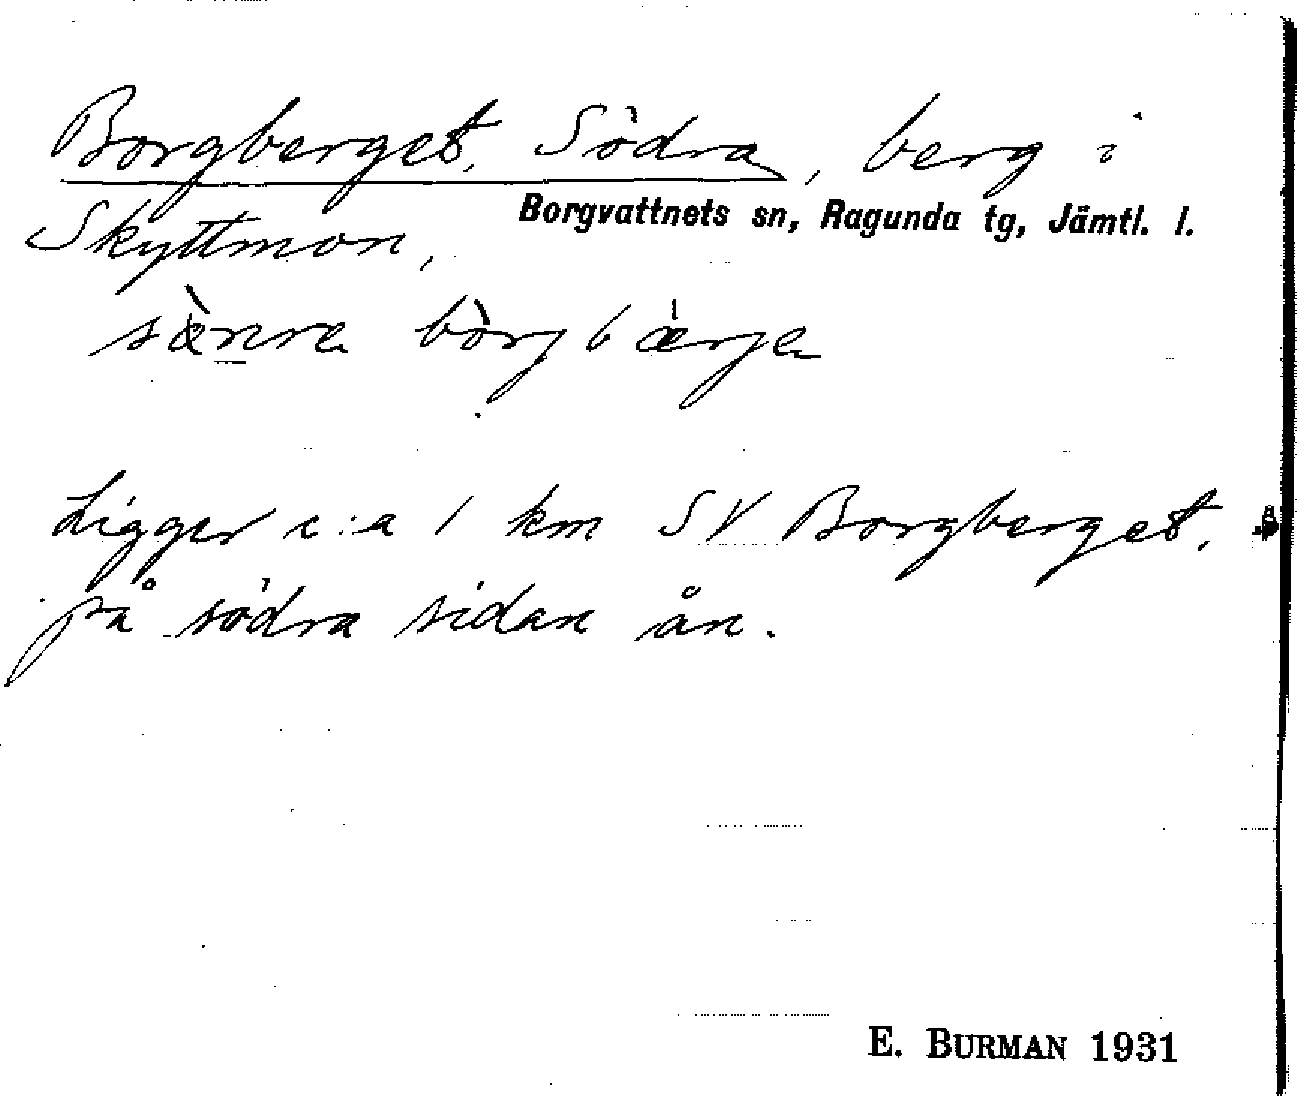 Borgberget, Södra, berg i
Borgvattnets sn, Ragunda tg, Jämtl. l.
Skyttmon,
sæ̀nra bòrgbærje
Ligger c:a 1 km SV Borgberget,
på södra sidan ån.
E. BURMAN 1931